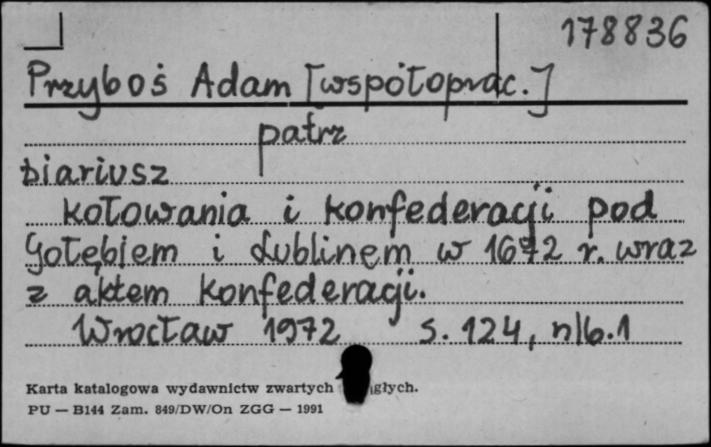 178836
Przyboś Adam [współoprac.]
patrz
Diariusz
kołowania i konfederacji pod
Gołębiem i Lublinem w 1672 r. wraz
z aktem konfederacji.
Wrocław 1972 s. 124, nlb. 1
Karta katalogowa wydawnictw zwartych głych.
PU — B144 Zam. 849/DW/On ZGG — 1991